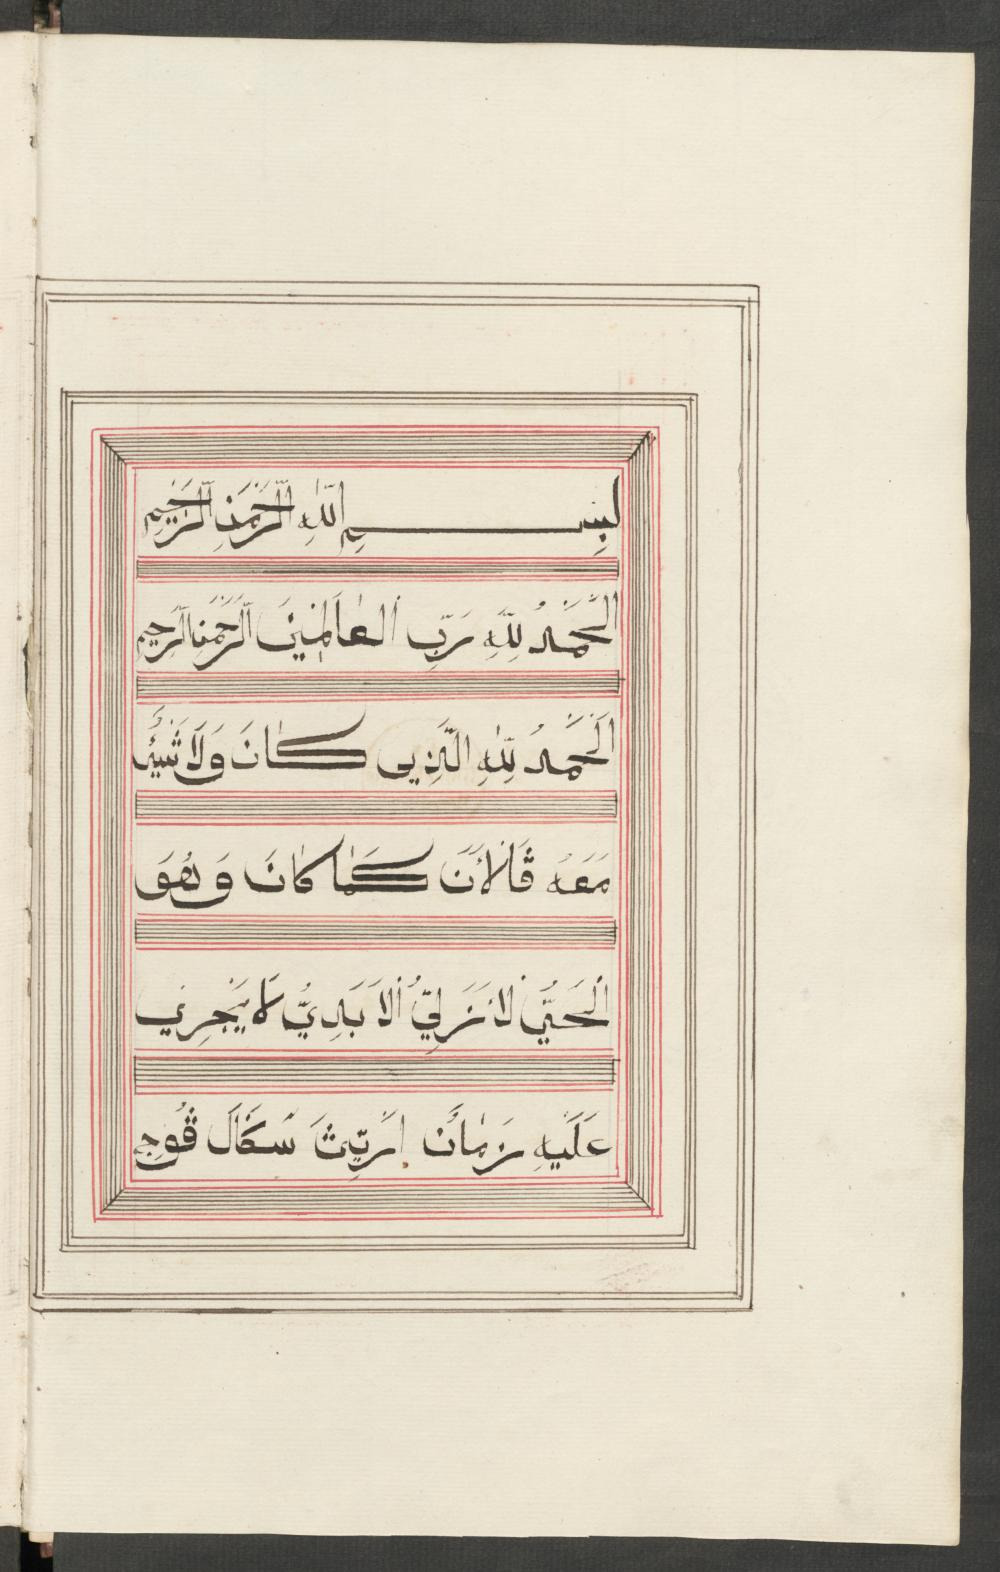 بِسْمِ اللّٰهِ الرَّحْمَنِ الرَّحِيْمِ
اَلْحَمْدُ لِلّٰهِ رَبِّ الْعَالَمِيْنَ الرَّحْمٰنِ الرَّحِيْمِ
اَلْحَمْدُ لِلّٰهِ الَّذِيْ كَانَ وَلَا شَيْئَ
مَعَهُ فَالْأَنَ كَمَا كَانَ وَهُوَ
الْحَيُّ لْاَزَلِيُّ الْاَبَدِيُّ لَا يَجْرِيْ
عَلَيْهِ زَمَانٌ ارتيڽ سكل ڤوج